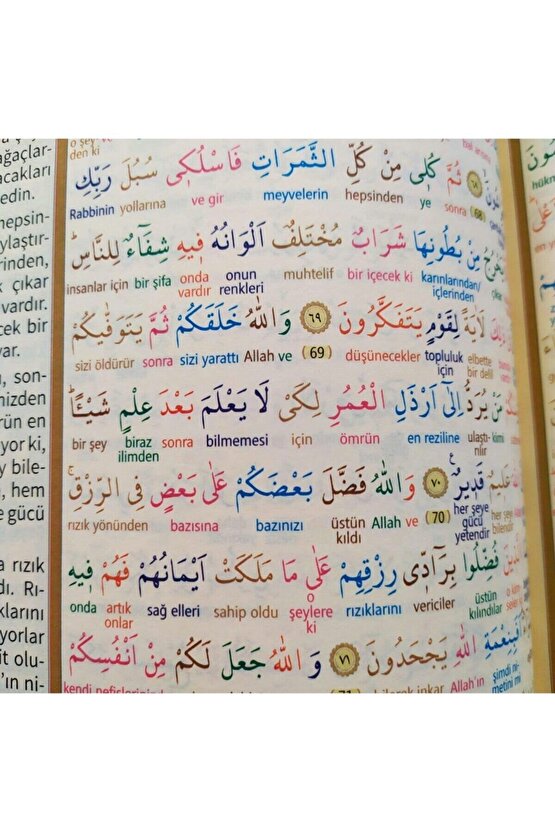 ağaçlar-
acakları
edin.
hepsin-
ylaştır-
rinden,
çıkar
vardır.
cek bir
var.
n, son-
nizden
rün en
yor ki,
y bile-
, hem
e gücü
a rızık
dı. Rı-
klarını
yorlar
it olu-
'ın ni-
o şey ve
den ki
ثُمَّ كُلِى مِنْ كُلِّ الثَّمَرَاتِ فَاسْلُكِى سُبُلَ رَبِّكِ
Rabbinin yollarına ve gir meyvelerin hepsinden ye sonra (68)
يَخْرُجُ مِنْ بُطُونِهَا شَرَابٌ مُخْتَلِفٌ اَلْوَانُهُ فِيهِ شِفَاءٌ لِلنَّاسِ
insanlar için bir şifa onda vardır onun renkleri muhtelif bir içecek ki karınlarından/ içlerinden çıkar
لَاٰيَةً لِقَوْمٍ يَتَفَكَّرُونَ ﴿٦٩﴾ وَاللّٰهُ خَلَقَكُمْ ثُمَّ يَتَوَفّٰيكُمْ
sizi öldürür sonra sizi yarattı Allah ve (69) düşünecekler topluluk için elbette bir delil
مَنْ يُرَدُّ اِلٰٓى اَرْذَلِ الْعُمُرِ لِكَىْ لَا يَعْلَمَ بَعْدَ عِلْمٍ شَيْـًٔا
bir şey biraz ilimden sonra bilmemesi için ömrün en reziline ulaştı- rılır kimi
عَلِيمٌ قَدِيرٌ ﴿٧٠﴾ وَاللّٰهُ فَضَّلَ بَعْضَكُمْ عَلٰى بَعْضٍ فِى الرِّزْقِ
rızık yönünden bazısına bazınızı üstün kıldı Allah ve (70) her şeye gücü yetendir her şeyi bilendir
فُضِّلُوا بِرَٓادّٖى رِزْقِهِمْ عَلٰى مَا مَلَكَتْ اَيْمَانُهُمْ فَهُمْ فِيهِ
onda artık onlar sağ elleri sahip oldu o şeylere ki rızıklarını vericiler üstün kılındılar
اَفَبِنِعْمَةِ اللّٰهِ يَجْحَدُونَ ﴿٧١﴾ وَاللّٰهُ جَعَلَ لَكُمْ مِنْ اَنْفُسِكُمْ
kendi nefislerinizden (71) bilerek inkar Allah'ın şimdi ni- metini mi